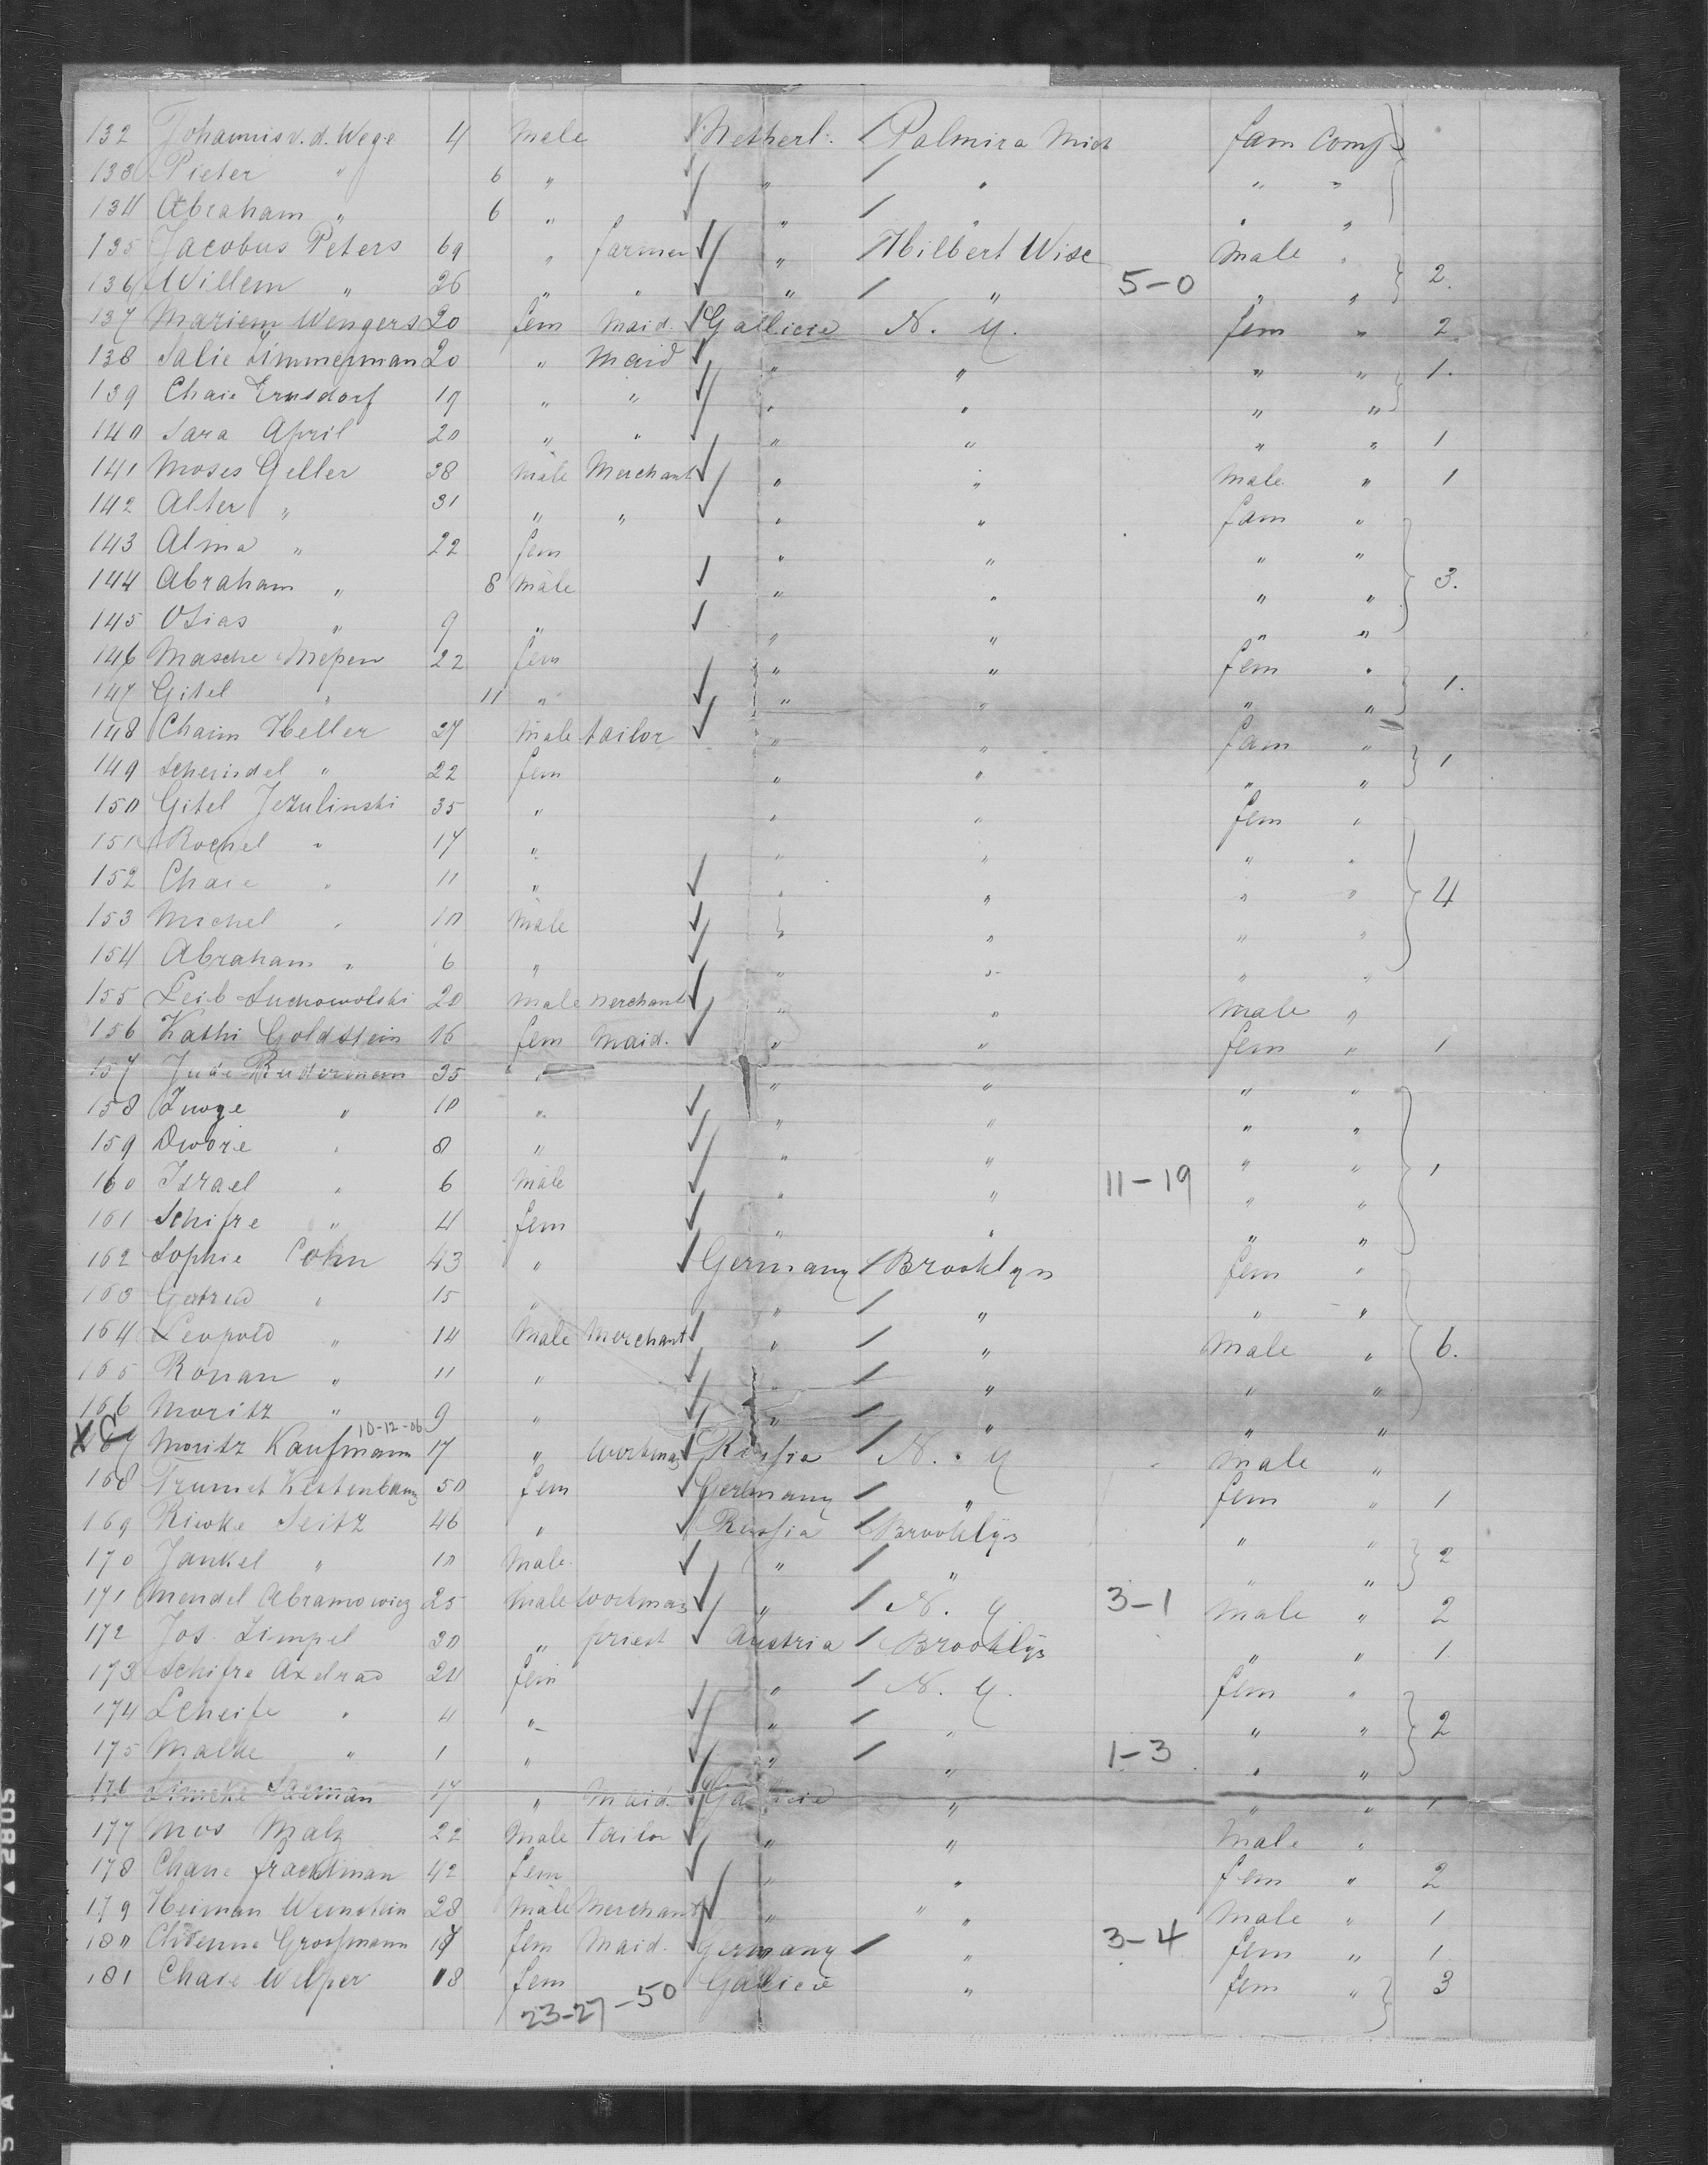 132 Johannis v. d. Wege 4 Male Netherl. Palmira Mich fam Comp
133 Pieter " 6 " " " " "
134 Abraham " 6 " " " " "
135 Jacobus Peters 69 " farmer " Hilbert Wisc Male "
136 Willem " 26 " " " " 5-0 " " 2.
137 Mariem Wengers 20 fem Maid. Gallicie N. Y. fem " 2
138 Salie Zimmerman 20 " Maid " " " " 1.
139 Chaie Ernsdorf 19 " " " " " "
140 Sara April 20 " " " " " " 1
141 Moses Geller 38 Male Merchant " " Male " 1
142 Alter " 31 " " " " fam "
143 Alma " 22 fem " " " "
144 Abraham " 8 Male " " " " 3.
145 Osias " 9 " " " " "
146 Masche Mepen 22 fem " " fem "
147 Gitel " 11 " " " " " 1.
148 Chaim Heller 27 Male tailor " " fam "
149 Scheindel " 22 fem " " " " 1
150 Gitel Jezulinski 35 " " " fem "
151 Rochel " 17 " " " " "
152 Chaie " 11 " " " " " 4
153 Michel " 10 Male " " " "
154 Abraham " 6 " " " " "
155 Leib Suchowolski 20 Male Merchant " " Male "
156 Kathi Goldstein 16 fem Maid. " " fem " 1
157 Jude Ruderman 35 " " " " "
158 " 10 " " " " "
159 Dwore " 8 " " " " "
160 Israel " 6 Male " " 11-19 " " 1
161 Schifre " 4 fem " " " "
162 Sophie Cohn 43 " Germany Brooklyn fem "
163 " 15 " " " " "
164 Leopold " 14 Male Merchant " " Male " 6.
165 Ronan " 11 " " " " "
166 Moritz " 9 " " " " "
XC 10-12-06
167 Moritz Kaufmann 17 " workman Russia N. Y Male "
168 Trumet Kestenbaum 50 fem Germany " fem " 1
169 Riwke Seitz 46 " Russia Brooklyn " "
170 Jankel " 10 Male " " " " 2
171 Mendel Abramowicz 25 Male workman " N. Y. 3-1 Male " 2
172 Jos. Zimpel 30 " priest Austria Brooklyn " " 1
173 Schifre Axelrad 24 fem " N. Y. fem "
174 Scheife " 4 " " " " " 2
175 Malke " 1 " " " 1-3 " "
176 17 " Maid. Gallicie " " " 1
177 Mos 22 Male Tailor " " Male "
178 Chane Frachtman 42 fem " " fem " 2
179 Heiman Weinstein 28 Male Merchant " " " Male " 1
180 Grossmann fem Maid. Germany " 3-4 fem " 1
181 Chaie Welper 18 fem Gallicie " fem " 3
23-27-50
SAFETY ▲ 2805